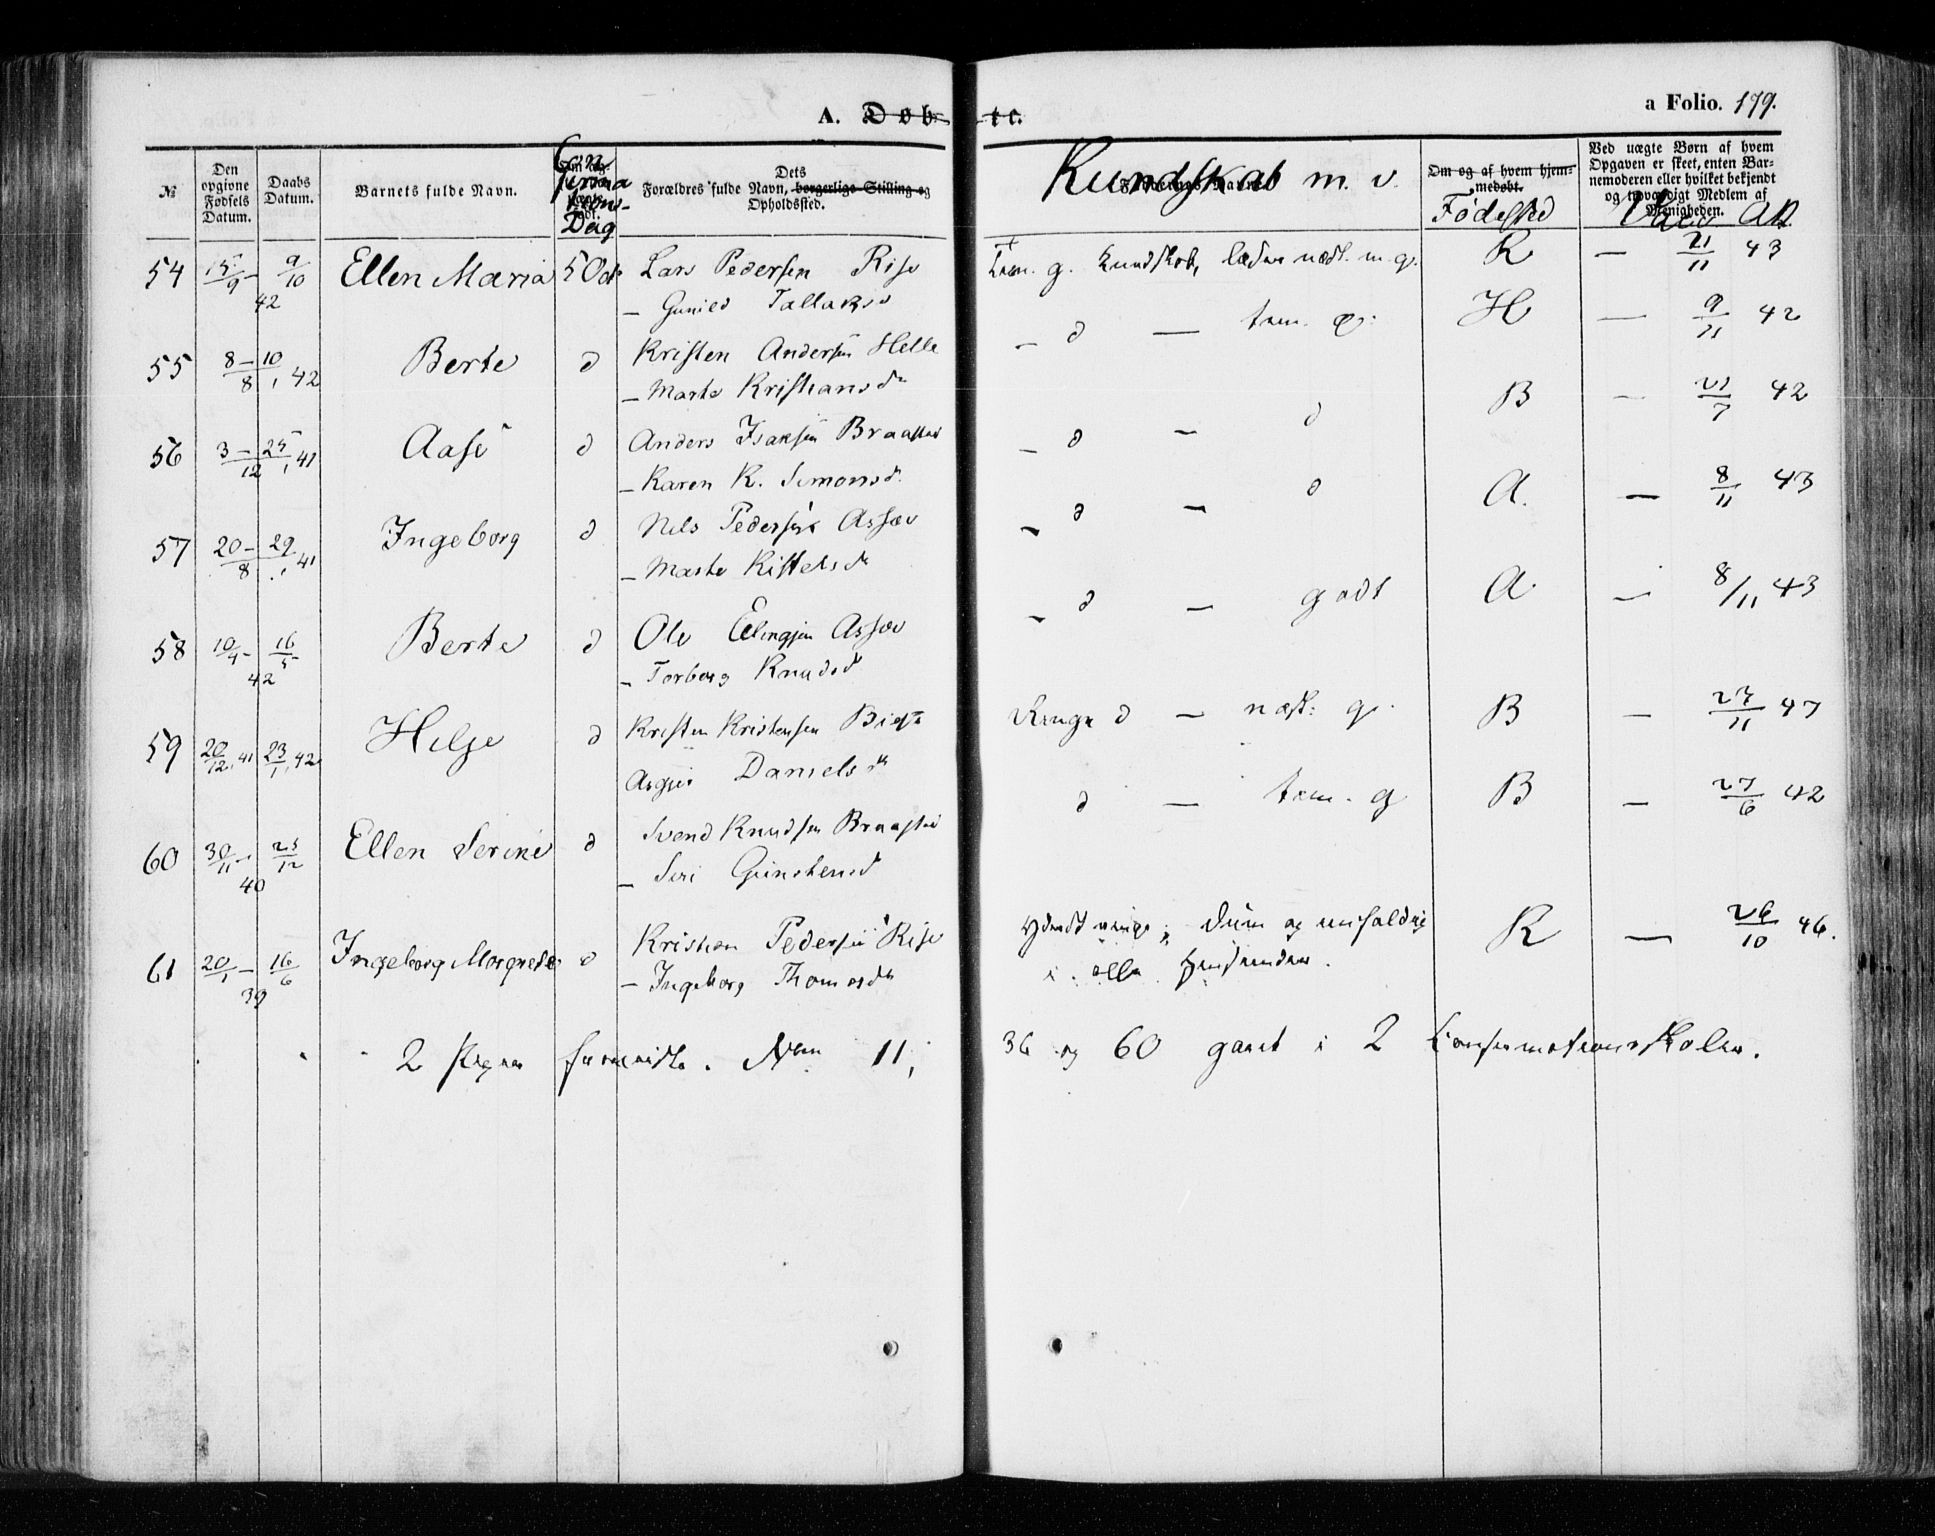 A. Døbte.
a Folio. 179.
№
Den opgivne Fødsels Datum.
Daabs Datum.
Barnets fulde Navn.
Confirmations-Dag
Dets Forældres fulde Navn, borgerlige Stilling og Opholdssted.
Kundskab m. v.
Om og af hvem hjemmedøbt.
Fødested
Ved uægte Børn af hvem Opgaven er skeet, enten Barnemoderen eller hvilket bekjendt og troværdigt Medlem af Menigheden.
Vacc. Att.
54 15/9 - 9/10 42 Ellen Maria 5 Oct Lars Pedersen Rise
- Gunild Tallaksd
Tem. g. Kundskab, læser nodt. m. g. R - 21/11 43
55 8 - 10/8, 42 Berte d Kristen Andersen Helle
- Marte Kristiansdr
- d - tem. g. H - 9/11 42
56 3 - 25/12, 41 Aase d Anders Isaksen Braastad
- Karen K. Simonsd.
- d - d B - 21/7 42
57 20 - 29/8, 41 Ingeborg d Nils Pedersen Assæv
- Marte Kittelsdr
- d - d A. - 8/11 43
58 10/4 - 16/5 42 Berte d Ole Ellingsen Assæv
- Torborg Knudsd
- d - godt A - 8/11 43
59 20/12, 41 23/1, 42 Helje d Kristen Kristensen
Asgjer Danielsdr
Ringe d - g. B - 27/11 47
60 30/11 - 25/12 40 Ellen Serine d Svend Knudsen Braastad
- Siri Gunstensd
d - tem. g B - 27/6 42
61 20/1 - 16/6 39 Ingeborg Margrete d Kristen Pedersen Rise
- Ingeborg Thomasdr
Yderst ringe; dum og eenfoldig
i alle Henseender.
R - 26/10 46.
2 Piger fremmødte. Nem 11, 36 og 60 gaaet i 2 Confirmationsskoler.